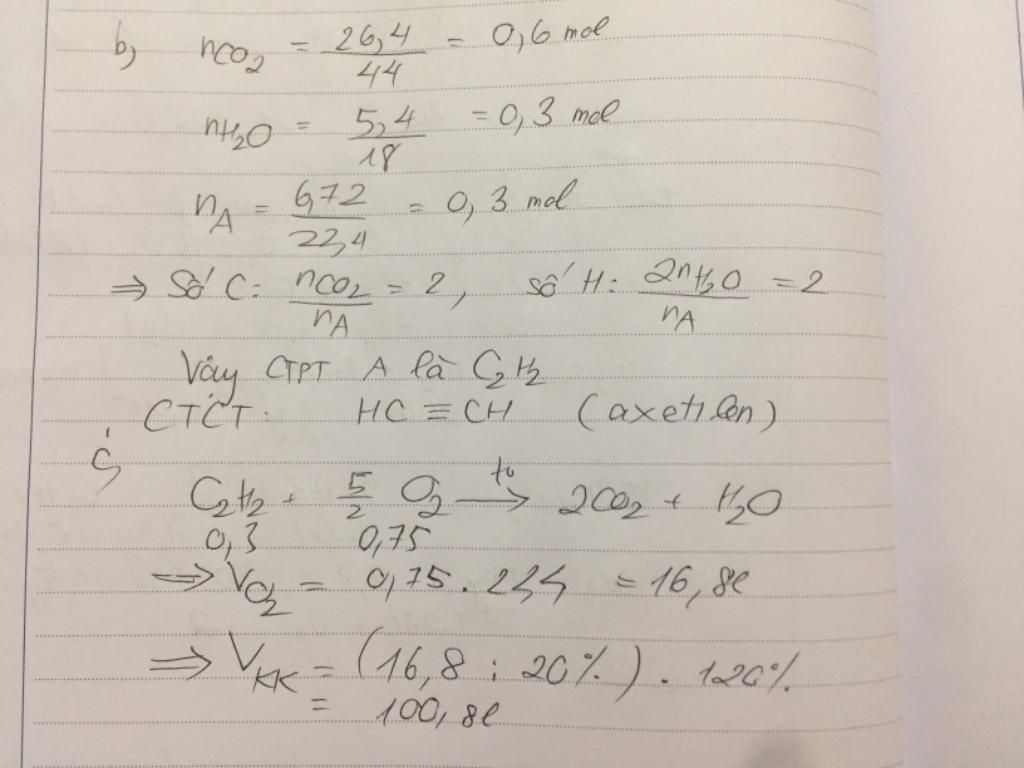 b, nCO2 = 26,4/44 = 0,6 mol
nH2O = 5,4/18 = 0,3 mol
nA = 6,72/22,4 = 0,3 mol
⇒ Số C: nCO2/nA = 2, số H: 2nH2O/nA = 2
Vậy CTPT A là C2H2
CTCT: HC ≡ CH (axetilen)
c,
C2H2 + 5/2 O2 →(to) 2CO2 + H2O
0,3 0,75
⇒ VO2 = 0,75 . 22,4 = 16,8l
⇒ VKK = (16,8 : 20%) . 120%
= 100,8l